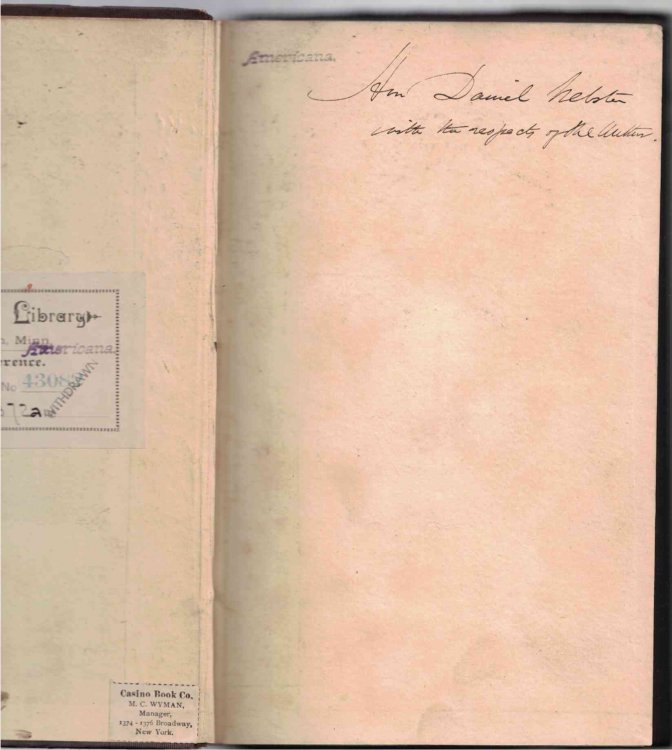 Library
n. Minn.
Americana.
erence.
No 4308
72a
WITHDRAWN
Casino Book Co.
M. C. WYMAN,
Manager,
1374 - 1376 Broadway,
New York.
Americana.
Hon Daniel Webster
with the respects of the Author.